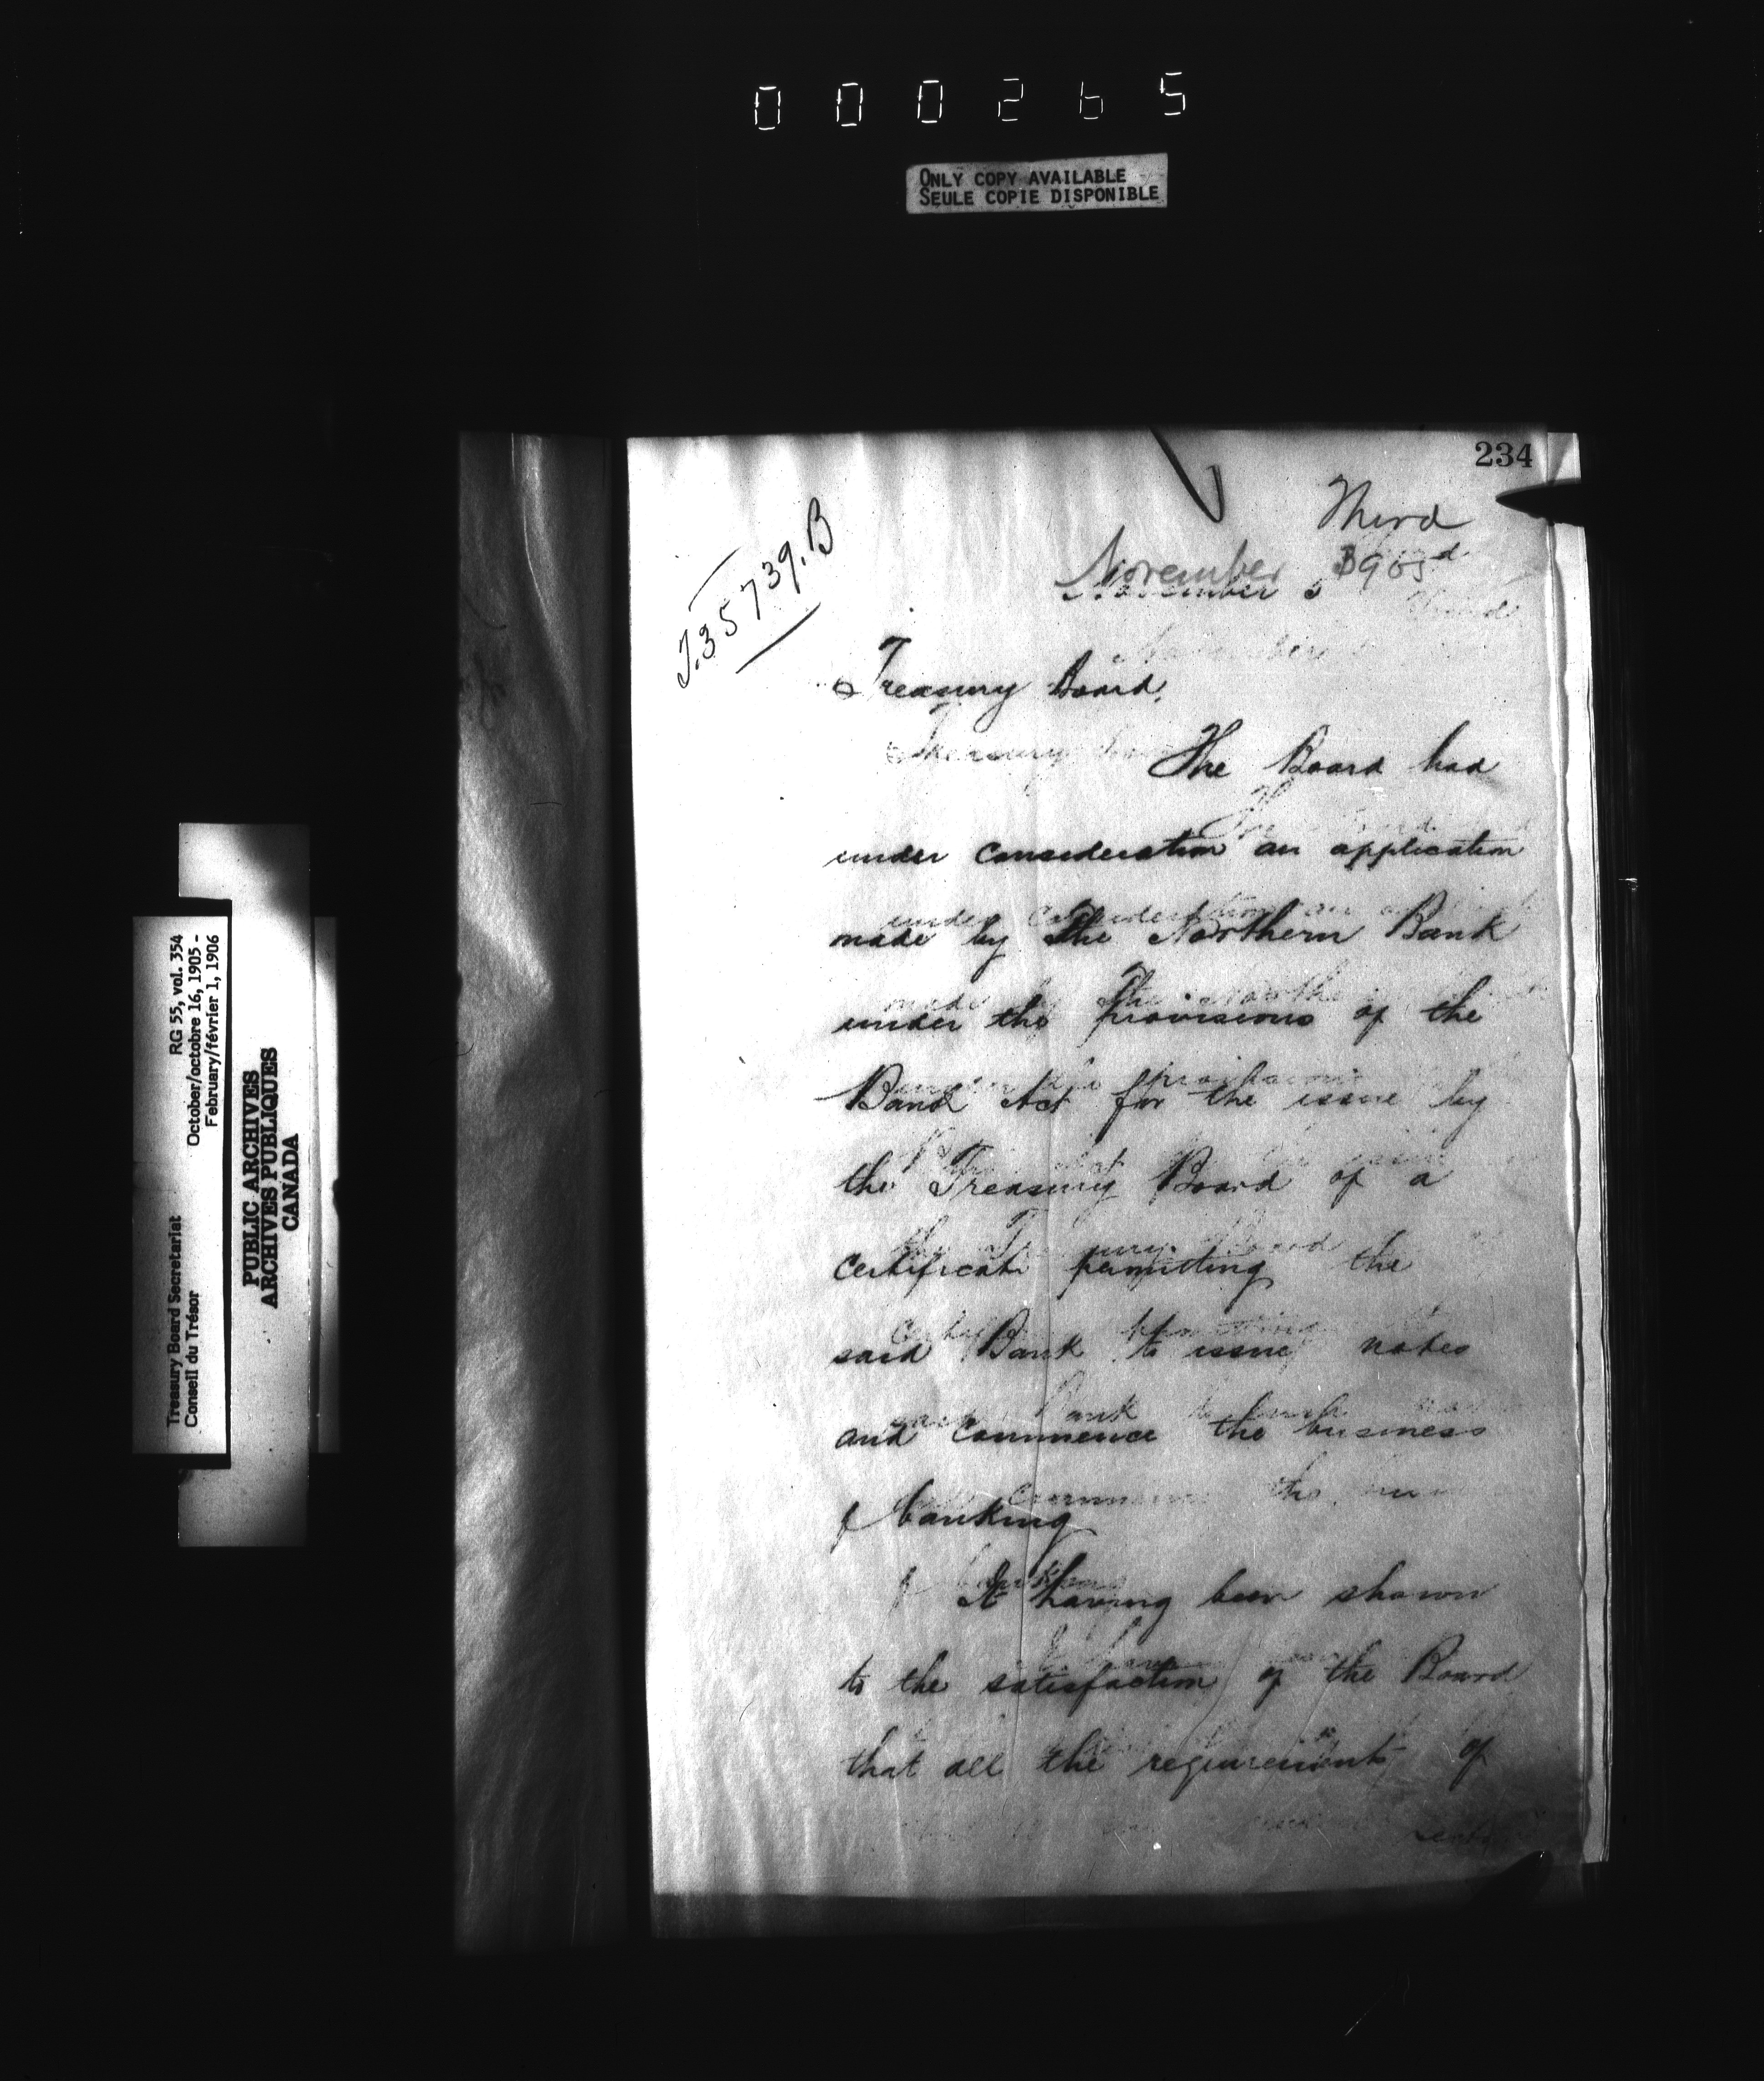 000265
ONLY COPY AVAILABLE
SEULE COPIE DISPONIBLE
Treasury Board Secretariat RG 55, vol. 354
Conseil du Trésor October/octobre 16, 1905 -
February/février 1, 1906
PUBLIC ARCHIVES
ARCHIVES PUBLIQUES
CANADA
234
J.35739.B
Third
November
November
Treasury Board.
The Board had
under consideration an application
made by The Northern Bank
under the provisions of the
Bank Act for the issue by
the Treasury Board of a
certificate permitting the
said Bank to issue notes
and commence the business
of banking
It having been shown
to the satisfaction of the Board
that all the requirements of